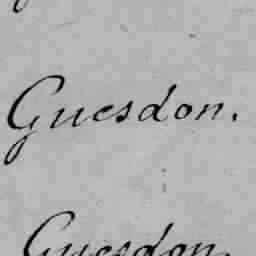 Guesdon.
Guesdon.